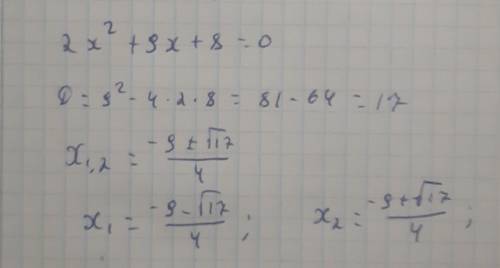 2x² + 9x + 8 = 0
D = 9² - 4 · 2 · 8 = 81 - 64 = 17
x₁,₂ = (-9 ± √17)/4
x₁ = (-9 - √17)/4 ; x₂ = (-9 + √17)/4 ;